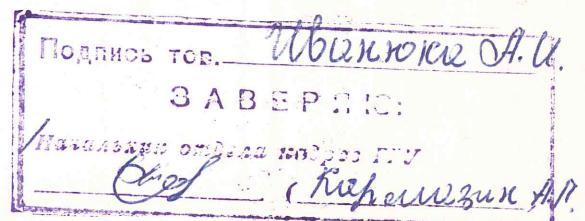 Подпись тов. Иванюка А.И.
ЗАВЕРЯЮ:
Начальник отдела кадров ГГУ
( Кармазин А.П.